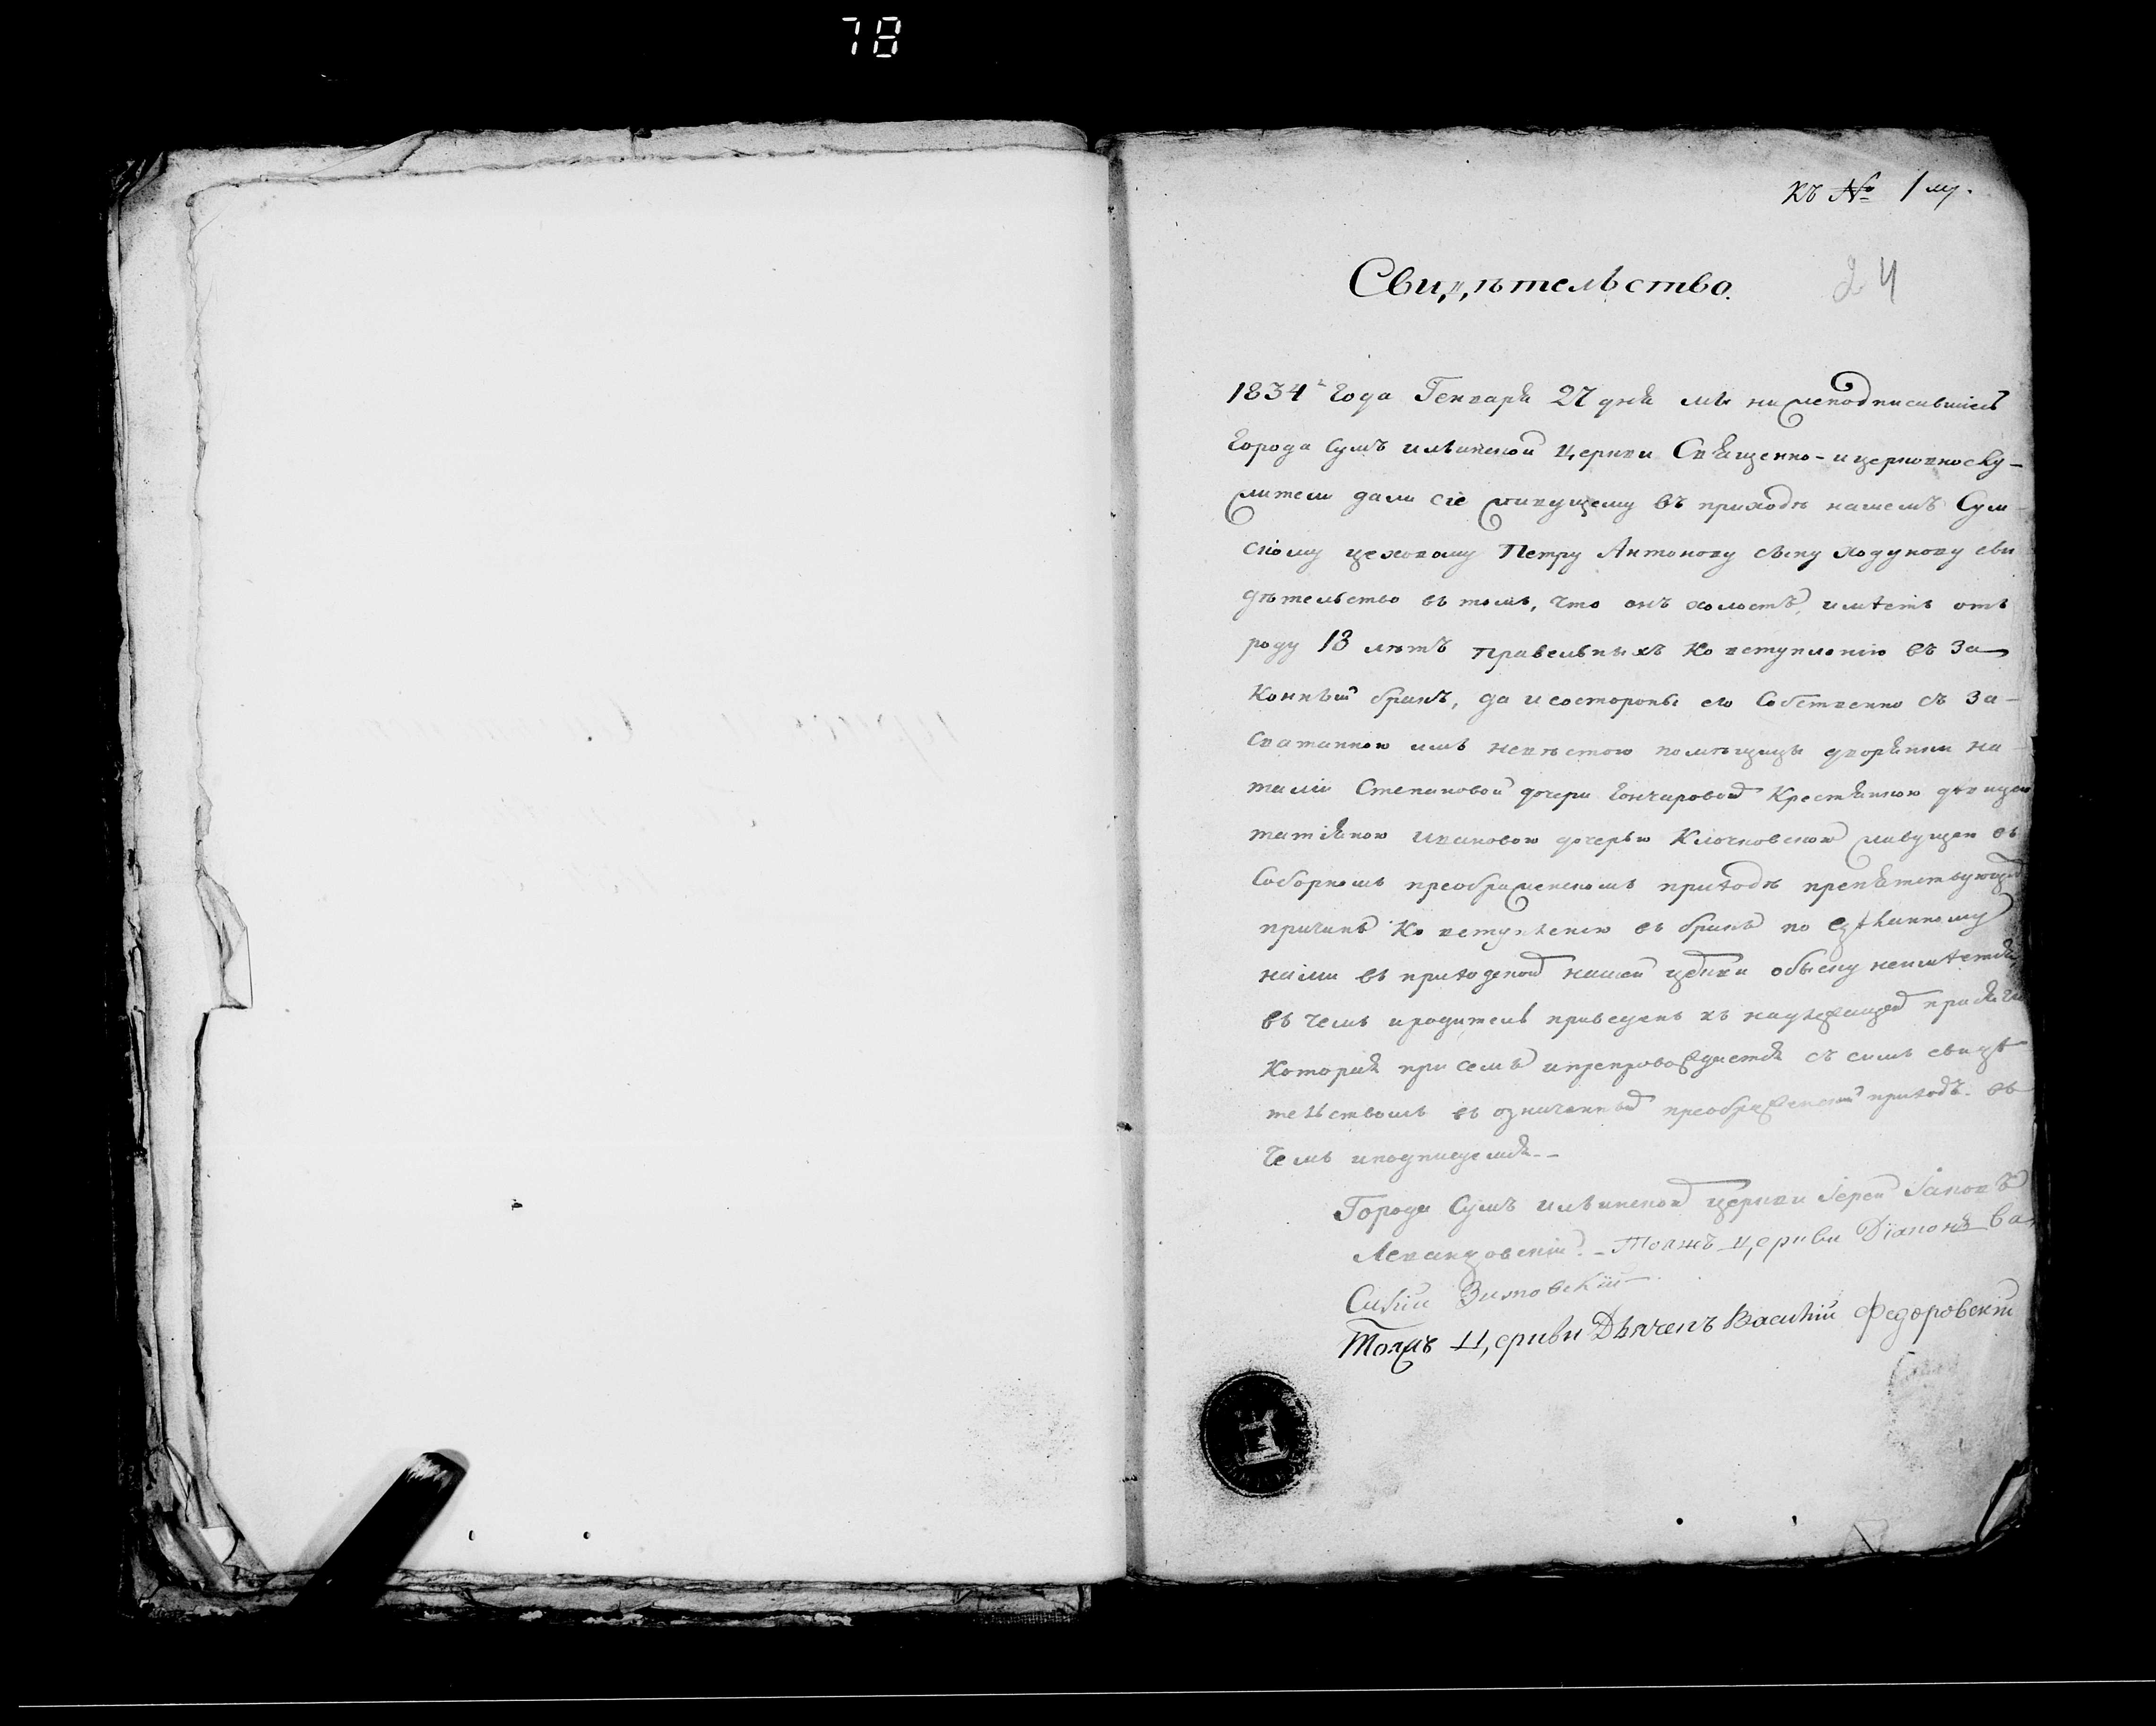 78
Къ № 1му.
24
Свидѣтельство.
1834 года Генваря 27 дня мы нижеподписавшіесь
города Сумъ ильинской Церкви Священно-и церковнослу-
жители дали сіе живущему въ приходѣ нашемъ Сум-
скому цеховому Петру Антонову сыну Ходунову сви
дѣтельство въ томъ, что онъ холостъ, имѣетъ отъ
роду 18 лѣтъ правельныхъ Ко вступлению въ За
Конный бракъ, да и состороны его Собственно съ За-
сватанною имъ невѣстою помѣщицы дворянки На-
таліи Степановой дочери Гончаровой Крестьянкою дѣвицею
татіяною ивановою дочерью Клочковскою живущею въ
Соборномъ преображенскомъ приходѣ препятствующей
причины Ко вступленію въ бракъ по едѣланному
нами въ приходской нашей цркви обыску неимѣется,
въ чемъ и родитель приведенъ къ надлежащей присягѣ
Которая при семъ и препровождается съ симъ свидѣ
тельствомъ въ означенный преображенский приходъ. въ
чемъ и подписуемся.--
Города Сумъ ильинской церкви іерей іаковъ
Левандовскій. - Тояжъ Церкви Діаконъ Ва
Силій Зимовскій
Тояжъ Церкви Дьячекъ Василій Федоровскій